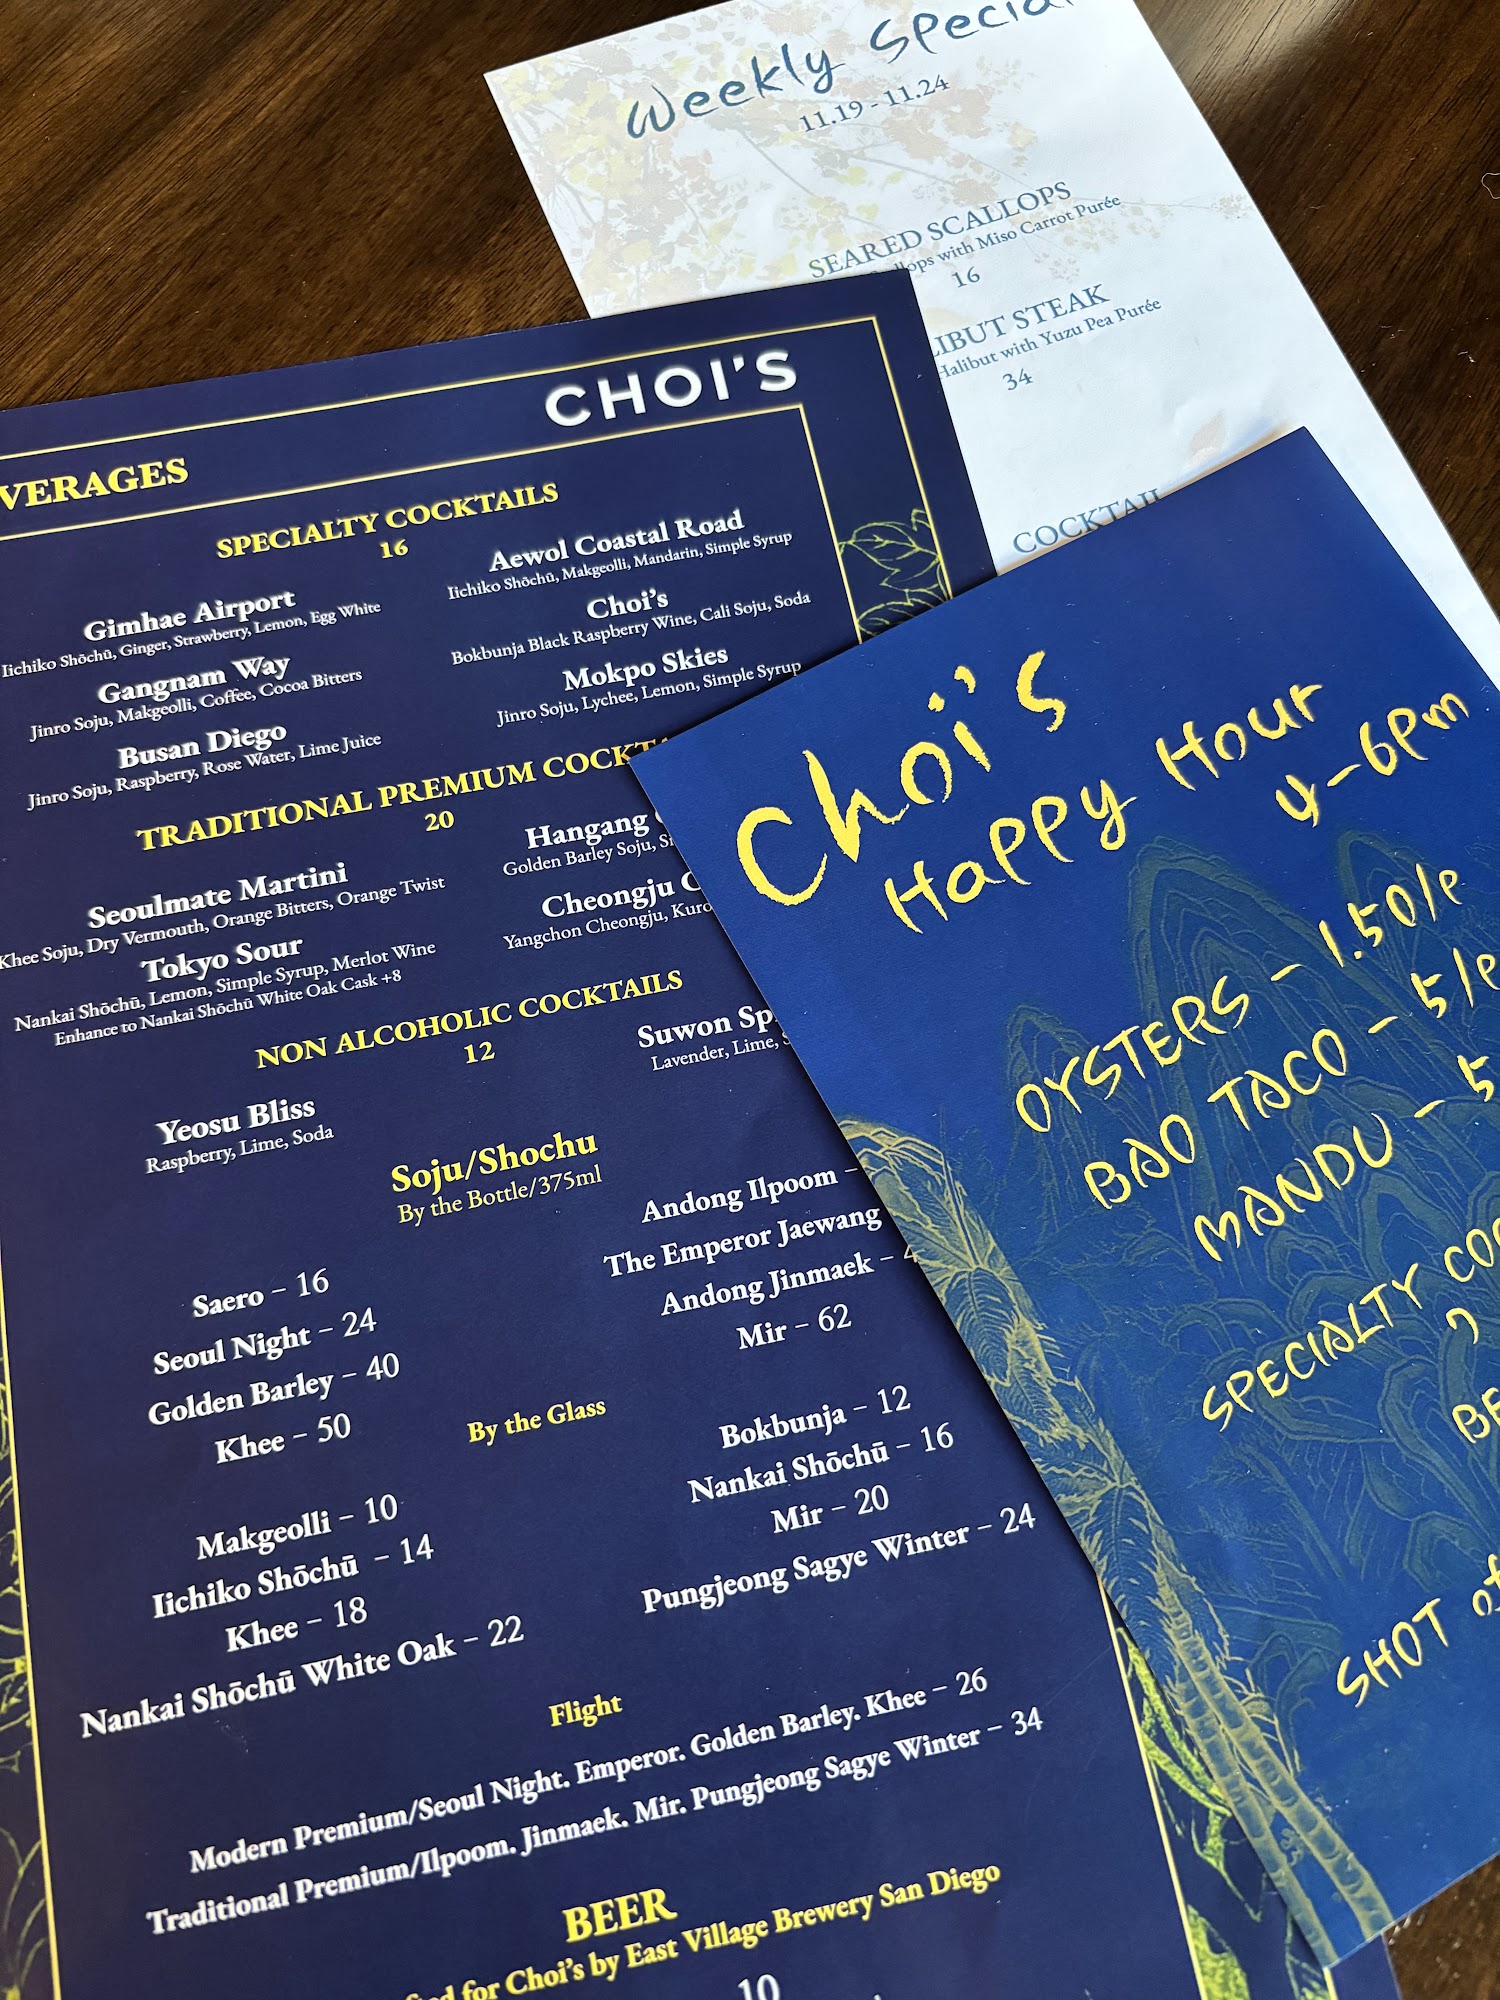 Weekly
11.19 - 11.24
SEARED SCALLOPS
with Miso Carrot Purée
16
STEAK
Halibut with Yuzu Pea Purée
34
COCKTAIL
CHOI'S
SPECIALTY COCKTAILS
16
Gimhae Airport
Iichiko Shōchū, Ginger, Strawberry, Lemon, Egg White
Gangnam Way
Jinro Soju, Makgeolli, Coffee, Cocoa Bitters
Busan Diego
Jinro Soju, Raspberry, Rose Water, Lime Juice
Aewol Coastal Road
Iichiko Shōchū, Makgeolli, Mandarin, Simple Syrup
Choi's
Bokbunja Black Raspberry Wine, Cali Soju, Soda
Mokpo Skies
Jinro Soju, Lychee, Lemon, Simple Syrup
TRADITIONAL PREMIUM
20
Seoulmate Martini
Khee Soju, Dry Vermouth, Orange Bitters, Orange Twist
Tokyo Sour
Nankai Shōchū, Lemon, Simple Syrup, Merlot Wine
Enhance to Nankai Shōchū White Oak Cask +8
Hangang
Golden Barley Soju,
Cheongju
Yangchon Cheongju,
NON ALCOHOLIC COCKTAILS
12
Yeosu Bliss
Raspberry, Lime, Soda
Suwon
Lavender, Lime,
Soju/Shochu
By the Bottle/375ml
Saero – 16
Seoul Night – 24
Golden Barley – 40
Khee – 50
Andong Ilpoom –
The Emperor Jaewang
Andong Jinmaek –
Mir – 62
By the Glass
Makgeolli – 10
Iichiko Shōchū – 14
Khee – 18
Nankai Shōchū White Oak – 22
Bokbunja – 12
Nankai Shōchū – 16
Mir – 20
Pungjeong Sagye Winter – 24
Flight
Modern Premium/Seoul Night. Emperor. Golden Barley. Khee – 26
Traditional Premium/Ilpoom. Jinmaek. Mir. Pungjeong Sagye Winter – 34
BEER
for Choi's by East Village Brewery San Diego
10
Choi's
Happy Hour
4-6pm
OYSTERS - 1.50/e
BAO TACO - 5/e
MANDU - 5
SPECIALTY
SHOT of